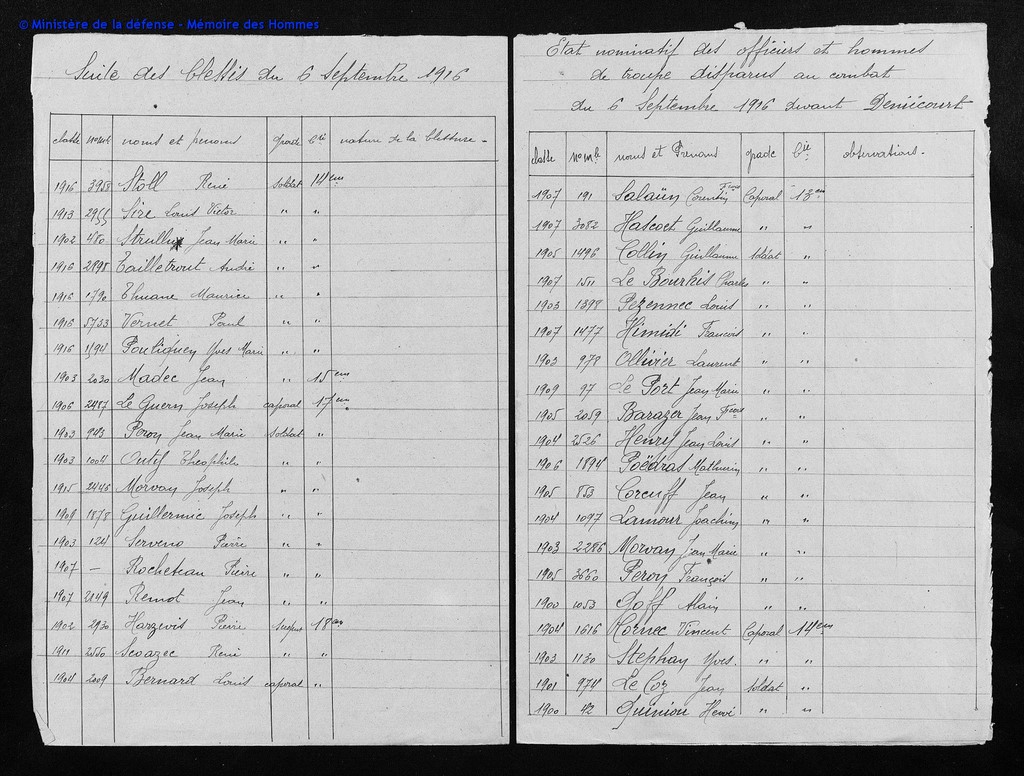 © Ministère de la défense - Mémoire des Hommes
Suite des blessés du 6 Septembre 1916
classe nos mle noms et prenoms grade Cie nature de la blessure -
1916 3958 Stoll René soldat 14em
1913 2955 Sire Louis Victor " "
1902 480 Strullu Jean Marie " "
1916 2898 Tailletrout André " "
1916 1790 Thuane Maurice " "
1916 5733 Vernet Paul " "
1916 1594 Pouliquen Yves Marie " "
1903 2030 Madec Jean " 15em
1906 2487 Le Guern Joseph caporal 17em
1903 943 Peron Jean Marie soldat "
1903 1004 Outil Théophile " "
1915 2446 Morvan Joseph " "
1909 1878 Guillermic Joseph " "
1903 124 Serveno Pierre " "
1907 — Rocheteau Pierre " "
1907 2149 Remot Jean " "
1902 2930 Harzevis Pierre 18em
1911 2550 Scoazec René " "
1904 2009 Bernard Louis caporal "
Etat nominatif des officiers et hommes
de troupe disparus au combat
du 6 Septembre 1916 devant Deniécourt
classe no mle noms et Prenoms grade Cie observations -
1907 191 Salaün Corentin Fcois Caporal 13em
1907 3082 Hascoet Guillaume " "
1905 1496 Collin Guillaume soldat "
1907 1511 Le Bourhis Charles " "
1903 1398 Pezennec Louis " "
1907 1477 Himidi Francois " "
1903 978 Ollivier Laurent " "
1909 97 Le Port Jean Marie " "
1905 2059 Barazer Jean Fcois " "
1904 2526 Henry Jean Louis " "
1906 1894 Poëdras Mathurin " "
1905 853 Corcuff Jean " "
1904 1097 Lamour Joachim " "
1903 2286 Morvan Jean Marie " "
1905 3660 Peron François " "
1900 1053 Goff Alain " "
1904 1616 Cornec Vincent Caporal 14em
1903 1130 Stephan Yves. " "
1901 974 Le Coz Jean soldat "
1900 42 Quiniou Hervé " "